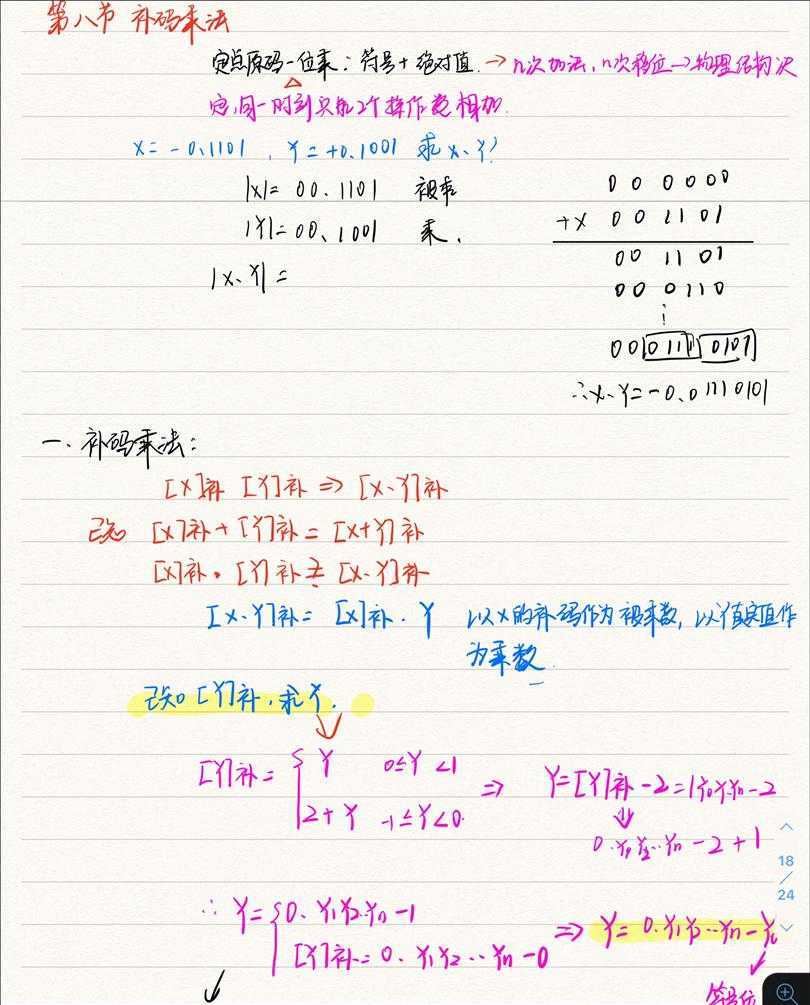 第八节 补码乘法
定点原码一位乘：符号+绝对值 → n次加法，n次移位→物理结构决
定，同一时刻只能2个操作数相加.
X = -0.1101 , Y = +0.1001 求X·Y?
|X| = 00.1101 被乘
|Y| = 00.1001 乘.
|X·Y| =
00 0000
+X 00 1101
00 11 01
00 0110
00 0111 0101
∴X·Y = -0.01110101
一. 补码乘法：
[X]补 [Y]补 ⇒ [X·Y]补
已知 [X]补 + [Y]补 = [X+Y]补
[X]补 · [Y]补 ≠ [X·Y]补
[X·Y]补 = [X]补 · Y 以X的补码作为被乘数，以Y真值作
为乘数.
已知[Y]补，求Y.
[Y]补 = { Y 0≤Y<1
2+Y -1≤Y<0.
⇒ Y=[Y]补-2=
0.y₁y₂…yn - 2 + 1
∴ Y = { 0.y₁y₂…yn - 1
[Y]补 = 0.y₁y₂…yn - 0
⇒ Y = 0.y₁y₂…yn -
符号位
18
/
24